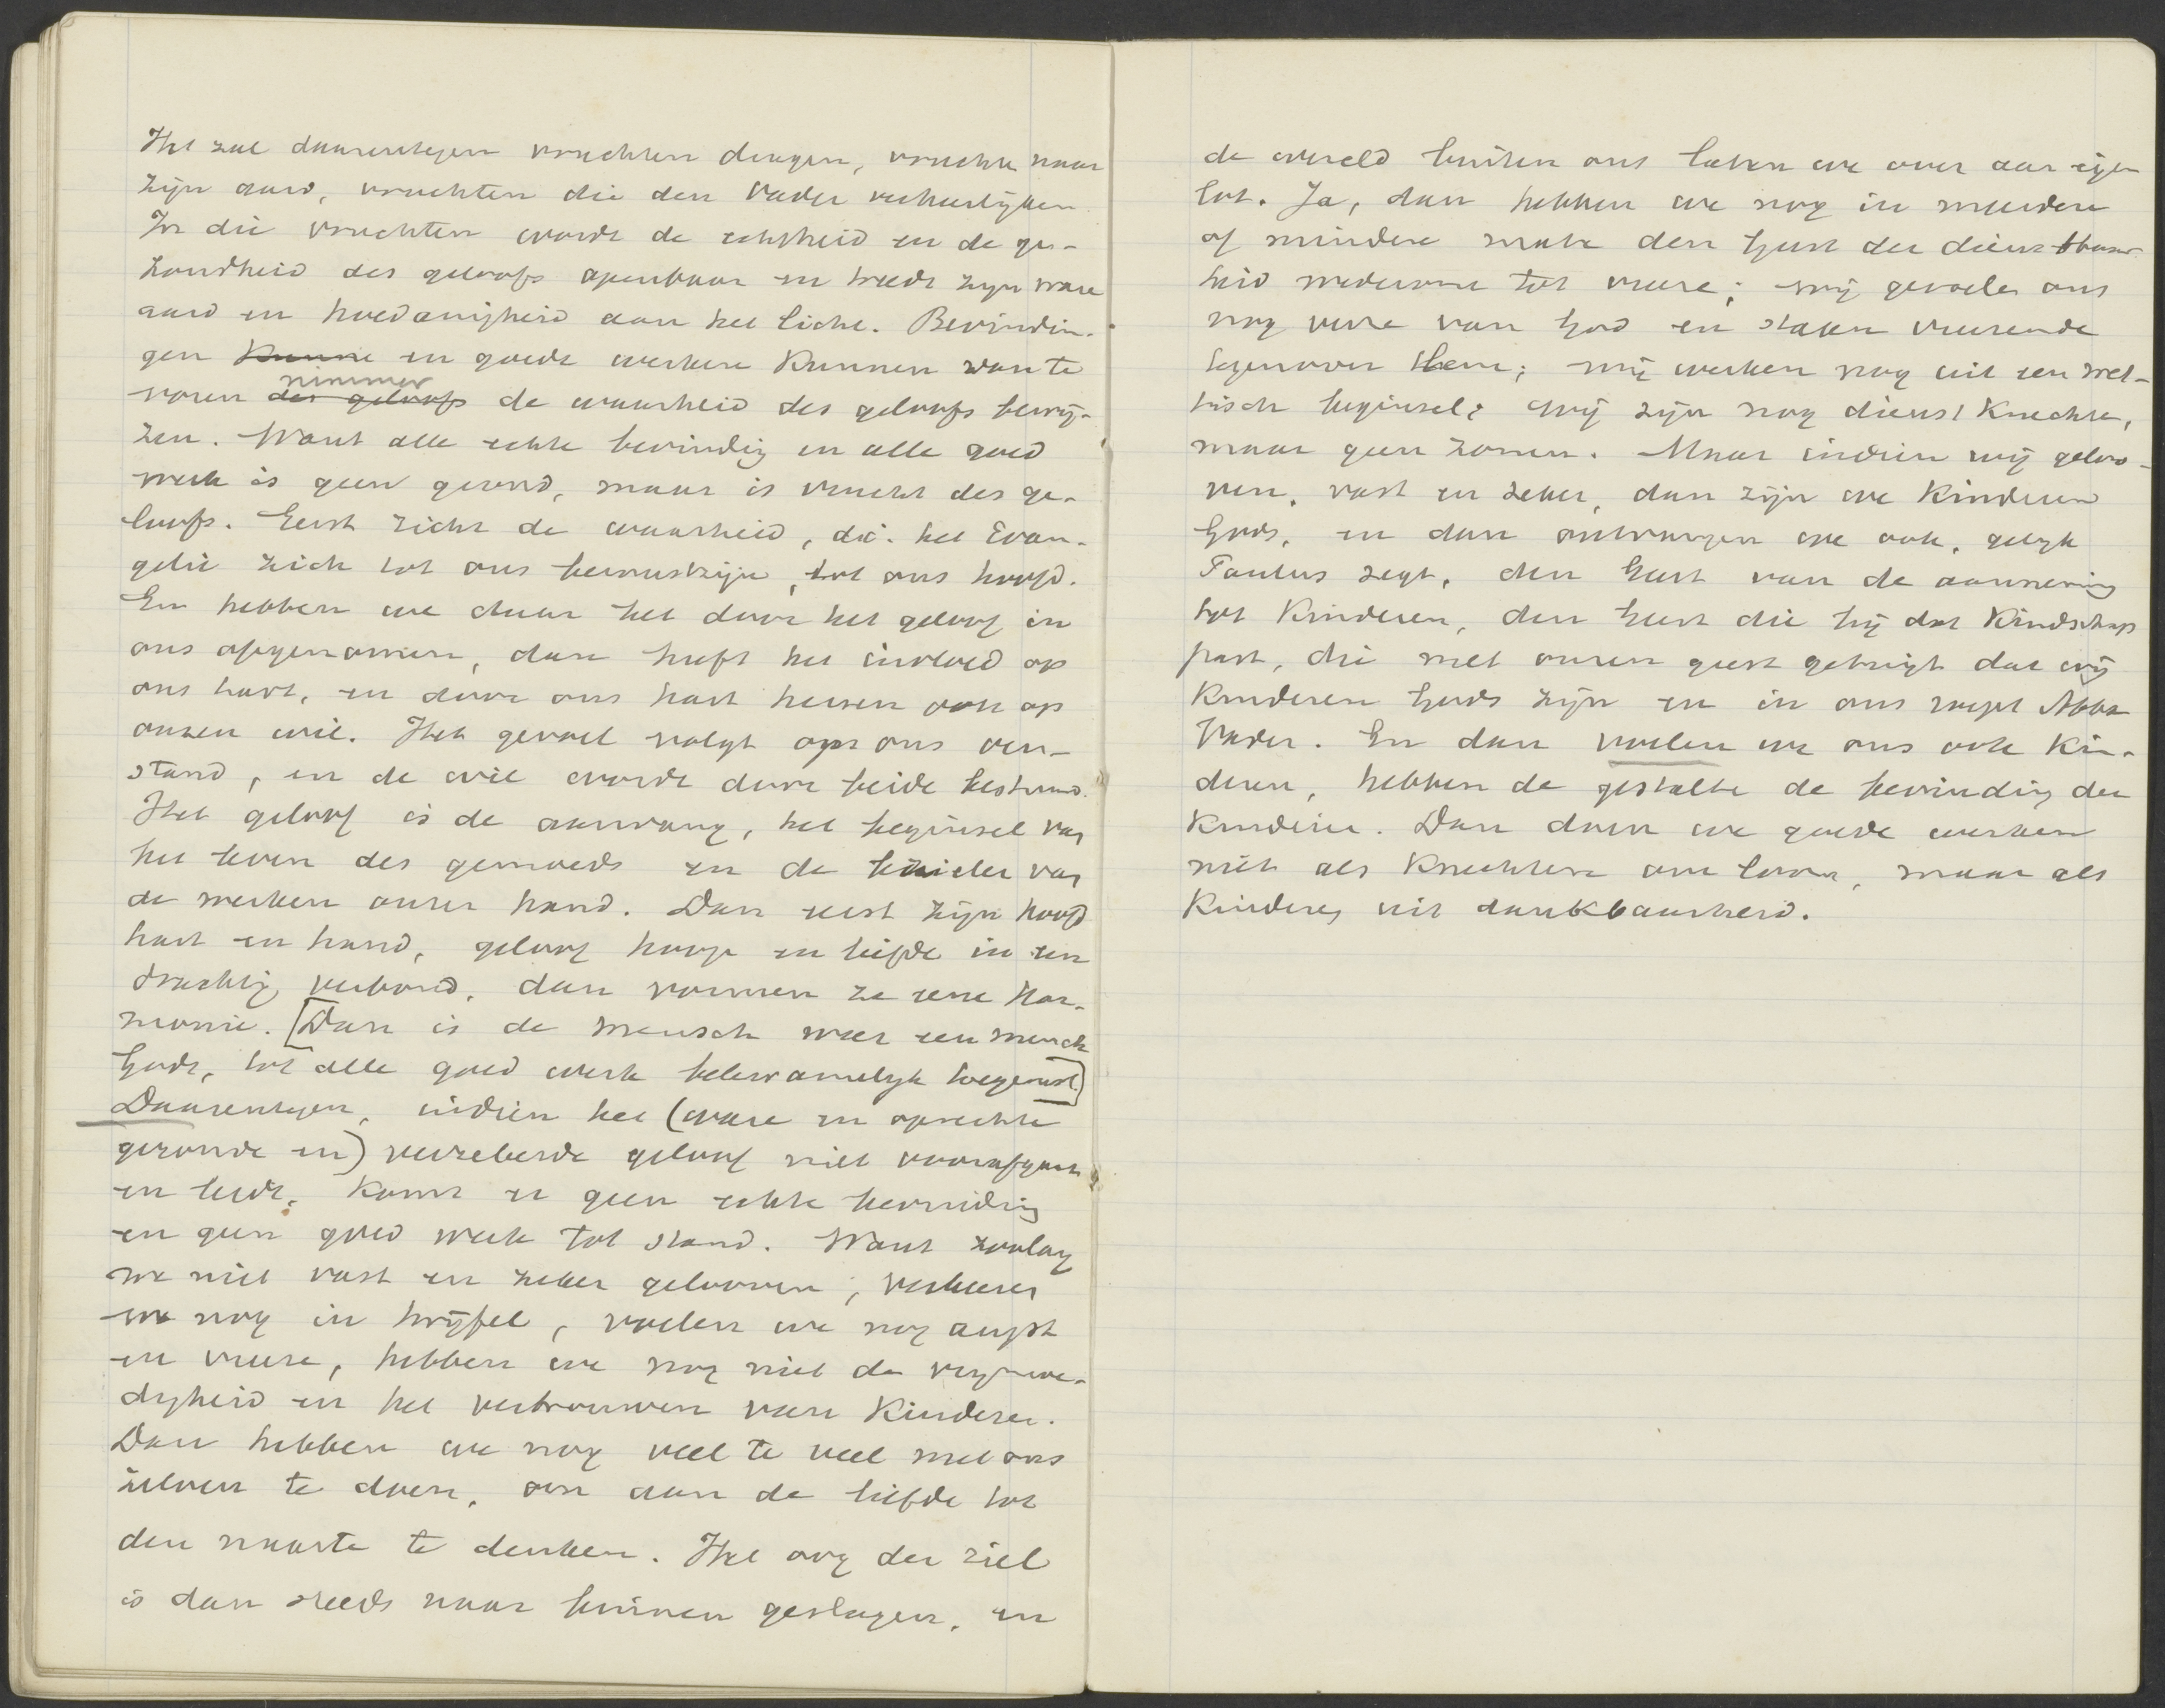 Het zal daarentegen vruchten dragen, vruchten naar
zijn aard, vruchten die den Vader verheerlijken.
In die vruchten wordt de echtheid en de ge-
zondheid des geloofs openbaar en treedt zijn ware
aard en hoedanigheid aan het licht. Bevindin-
gen kunne en goede werken kunnen van te
voren des geloofs nimmer de waarheid des geloofs bewij-
zen. Want alle echte bevinding en alle goed
werk is geen grond, maar is vrucht des ge-
loofs. Eerst richt de waarheid, d.i. het Evan-
gelie zich tot ons bewustzijn, tot ons hoofd.
En hebben we daar het door het geloof in
ons opgenomen, dan heeft het invloed op
ons hart, en door ons hart heenen ook op
onzen wil. Het gevoel volgt op ons ver-
stand, en de wil wordt door beide bestuurd.
Het geloof is de aanvang, het beginsel van
het leven des gemoeds en de leider van
de werken onzer hand. Dan eerst zijn hoofd
hart en hand, geloof hoop en liefde in een
drachtig verbond, dan vormen ze eene har-
monie. [Dan is de mensch weer een mensch
Gods, tot alle goed werk volkomelijk toegerust.]
Daarentegen, indien het (ware en oprechte
gezonde en) verzekerde geloof niet voorafgaat
en leidt, komt er geen echte bevinding
en geen goed werk tot stand. Want zoolang
we niet vast en zeker gelooven, verkeeren
we nog in twijfel, voelen we nog angst
en vreeze, hebben we nog niet de vrijmoe-
digheid en het vertrouwen van kinderen.
Dan hebben we nog veel te veel met ons
zelven te doen, om aan de liefde tot
den naaste te denken. Het oog der ziel
is dan steeds naar binnen geslagen, en
de wereld buiten ons laten we over aan eigen
lot. Ja, dan hebben we nog in meerdere
of mindere mate den Geest der dienstbaar-
heid wederom tot vreeze; wij gevoelen ons
nog verre van God en staan vreezende
tegenover Hem; wij werken nog uit een wet-
tisch beginsel; wij zijn nog dienstknechten,
maar geen zonen. Maar indien wij geloo-
ven, vast en zeker, dan zijn we kinderen
Gods, en dan ontvangen we ook, gelijk
Paulus zegt, den Geest van de aanneming
tot kinderen, den Geest die bij dat kindschap
past, die met onzen geest getuigt dat wij
kinderen Gods zijn en in ons roept Abba
Vader. En dan voelen we ons ook kin-
deren, hebben de gestalte de bevinding der
kinderen. Dan doen we goede werken
niet als knechten om loon, maar als
kinderen uit dankbaarheid.